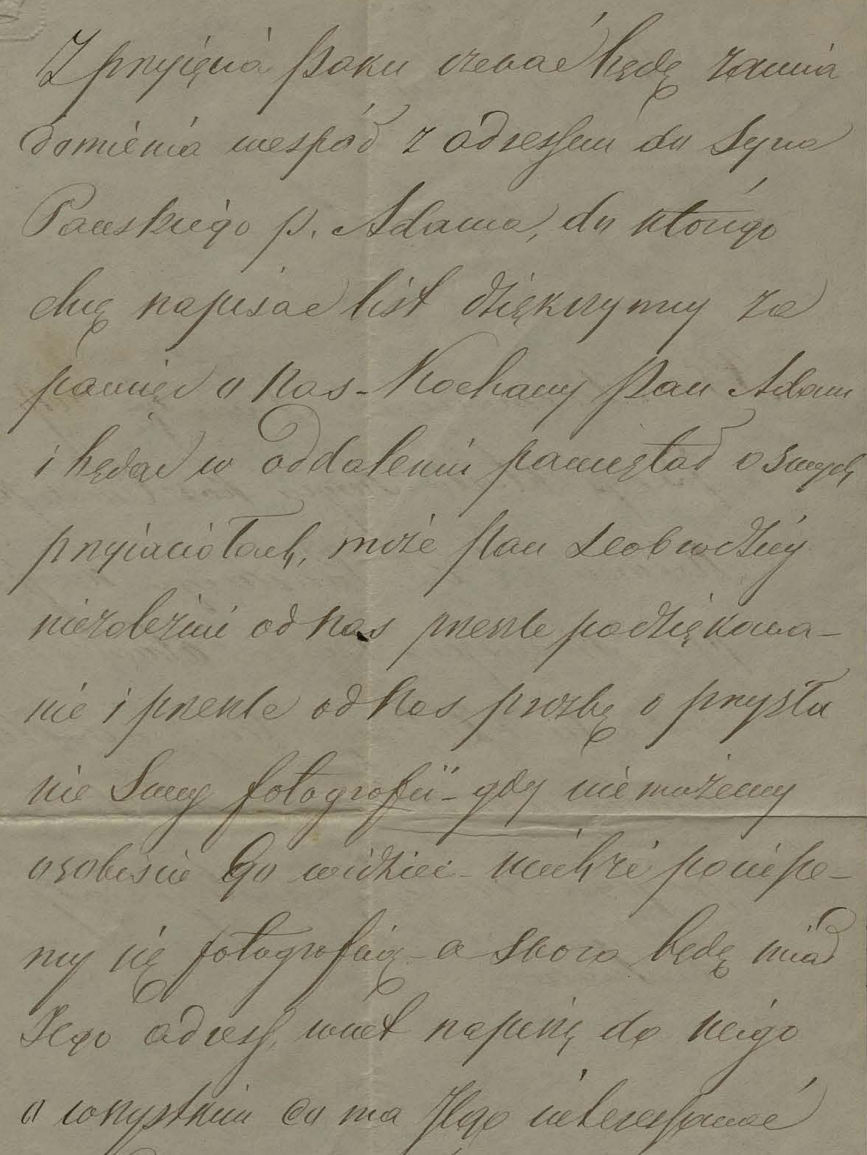 Z przyięcia paku czekać będę zawia
domienia wespół z adressem do Syna
Pańskiego p. Adama, do którego
chcę napisać list dziękczynny za
pamięć o nas – Kochany Pan Adam
i będąc w oddaleniu pamiętał o swych
przyiaciołach, może Pan Dobrodziéy
niezależnie od nas prześle podziękowa–
nie i prześle od nas prozbę o przysła
nie Swey fotografii – gdy nie możemy
osobiście Go widzieć – niechże poniesze–
my się fotografią – a skoro będę miał
Jego adress, wnet napiszę do niego
o wszystkim co ma Jego interessować